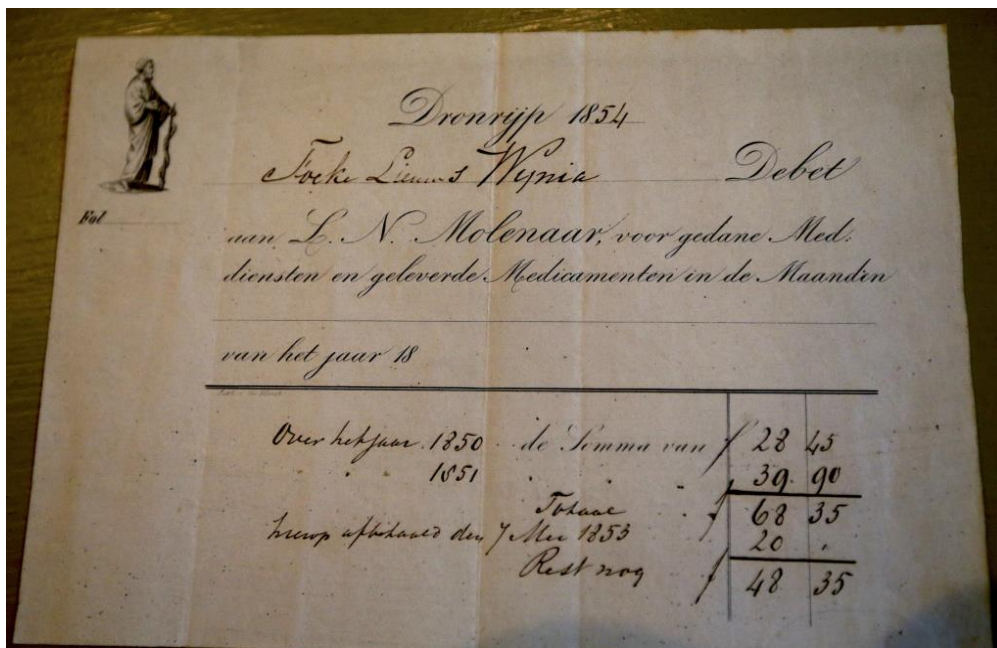 Dronrijp 1854
Focke Lieuwes Wijnia Debet
Fol
aan L. N. Molenaar, voor gedane Med:
diensten en geleverde Medicamenten in de Maanden
van het jaar 18
Over het jaar 1850 de Somma van f 28 45
" 1851 " " " 39. 90
Totaal " f 68 35
hierop afbetaald den 7 Mei 1853 20 "
Rest nog f 48 35